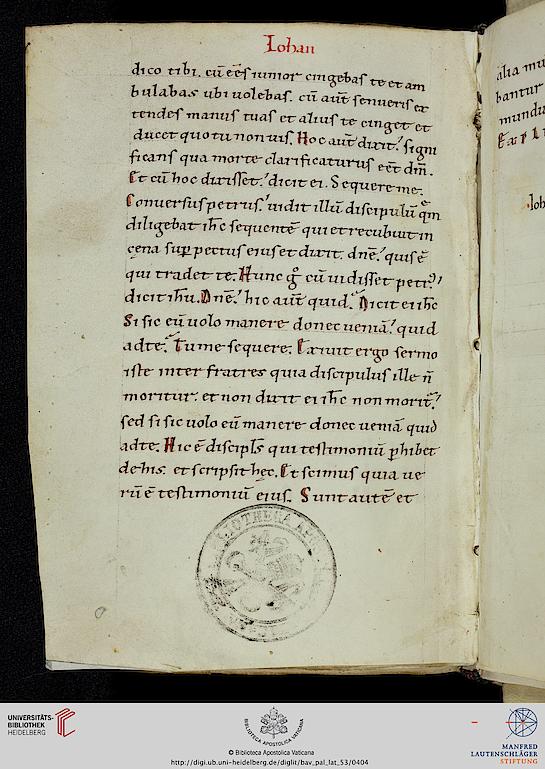 Iohan
dico tibi. cū eēs iunior cingebas te et am
bulabas ubi uolebas. cū aūt senueris ex
tendes manus tuas et alius te cinget et
ducet quo tu non uis. Hoc aūt dixit. signi
ficans qua morte clarificaturus eēt dm̄.
Et cū hoc dixisset. dicit ei. Sequere me.
Conuersus petrus. uidit illū discipulū quē
diligebat ihc̄ sequentē qui et recubuit in
cęna sup pectus eius et dixit. dn̄e. quis ē
qui tradet te. Hunc g̊ cū uidisset petr᷒.
dicit ihū. Dn̄e. hic aūt quid. Dicit ei ihc̄
Si sic eū uolo manere donec ueniā. quid
ad te. Tu me sequere. Exiuit ergo sermo
iste inter fratres quia discipulus ille n̄
moritur. et non dixit ei ihc̄ non morit᷑.
sed si sic uolo eū manere donec ueniā quid
ad te. Hic ē discipls̄ qui testimoniū phibet
de his. et scripsit hęc. Et scimus quia ue
rū ē testimoniū eius. Sunt autē et
alia mu
bantur
mundu
Ioh
BIBLIOTHECA
UNIVERSITÄTS-
BIBLIOTHEK
HEIDELBERG
BIBLIOTHECA APOSTOLICA VATICANA
© Biblioteca Apostolica Vaticana
http://digi.ub.uni-heidelberg.de/diglit/bav_pal_lat_53/0404
MANFRED
LAUTENSCHLÄGER
STIFTUNG